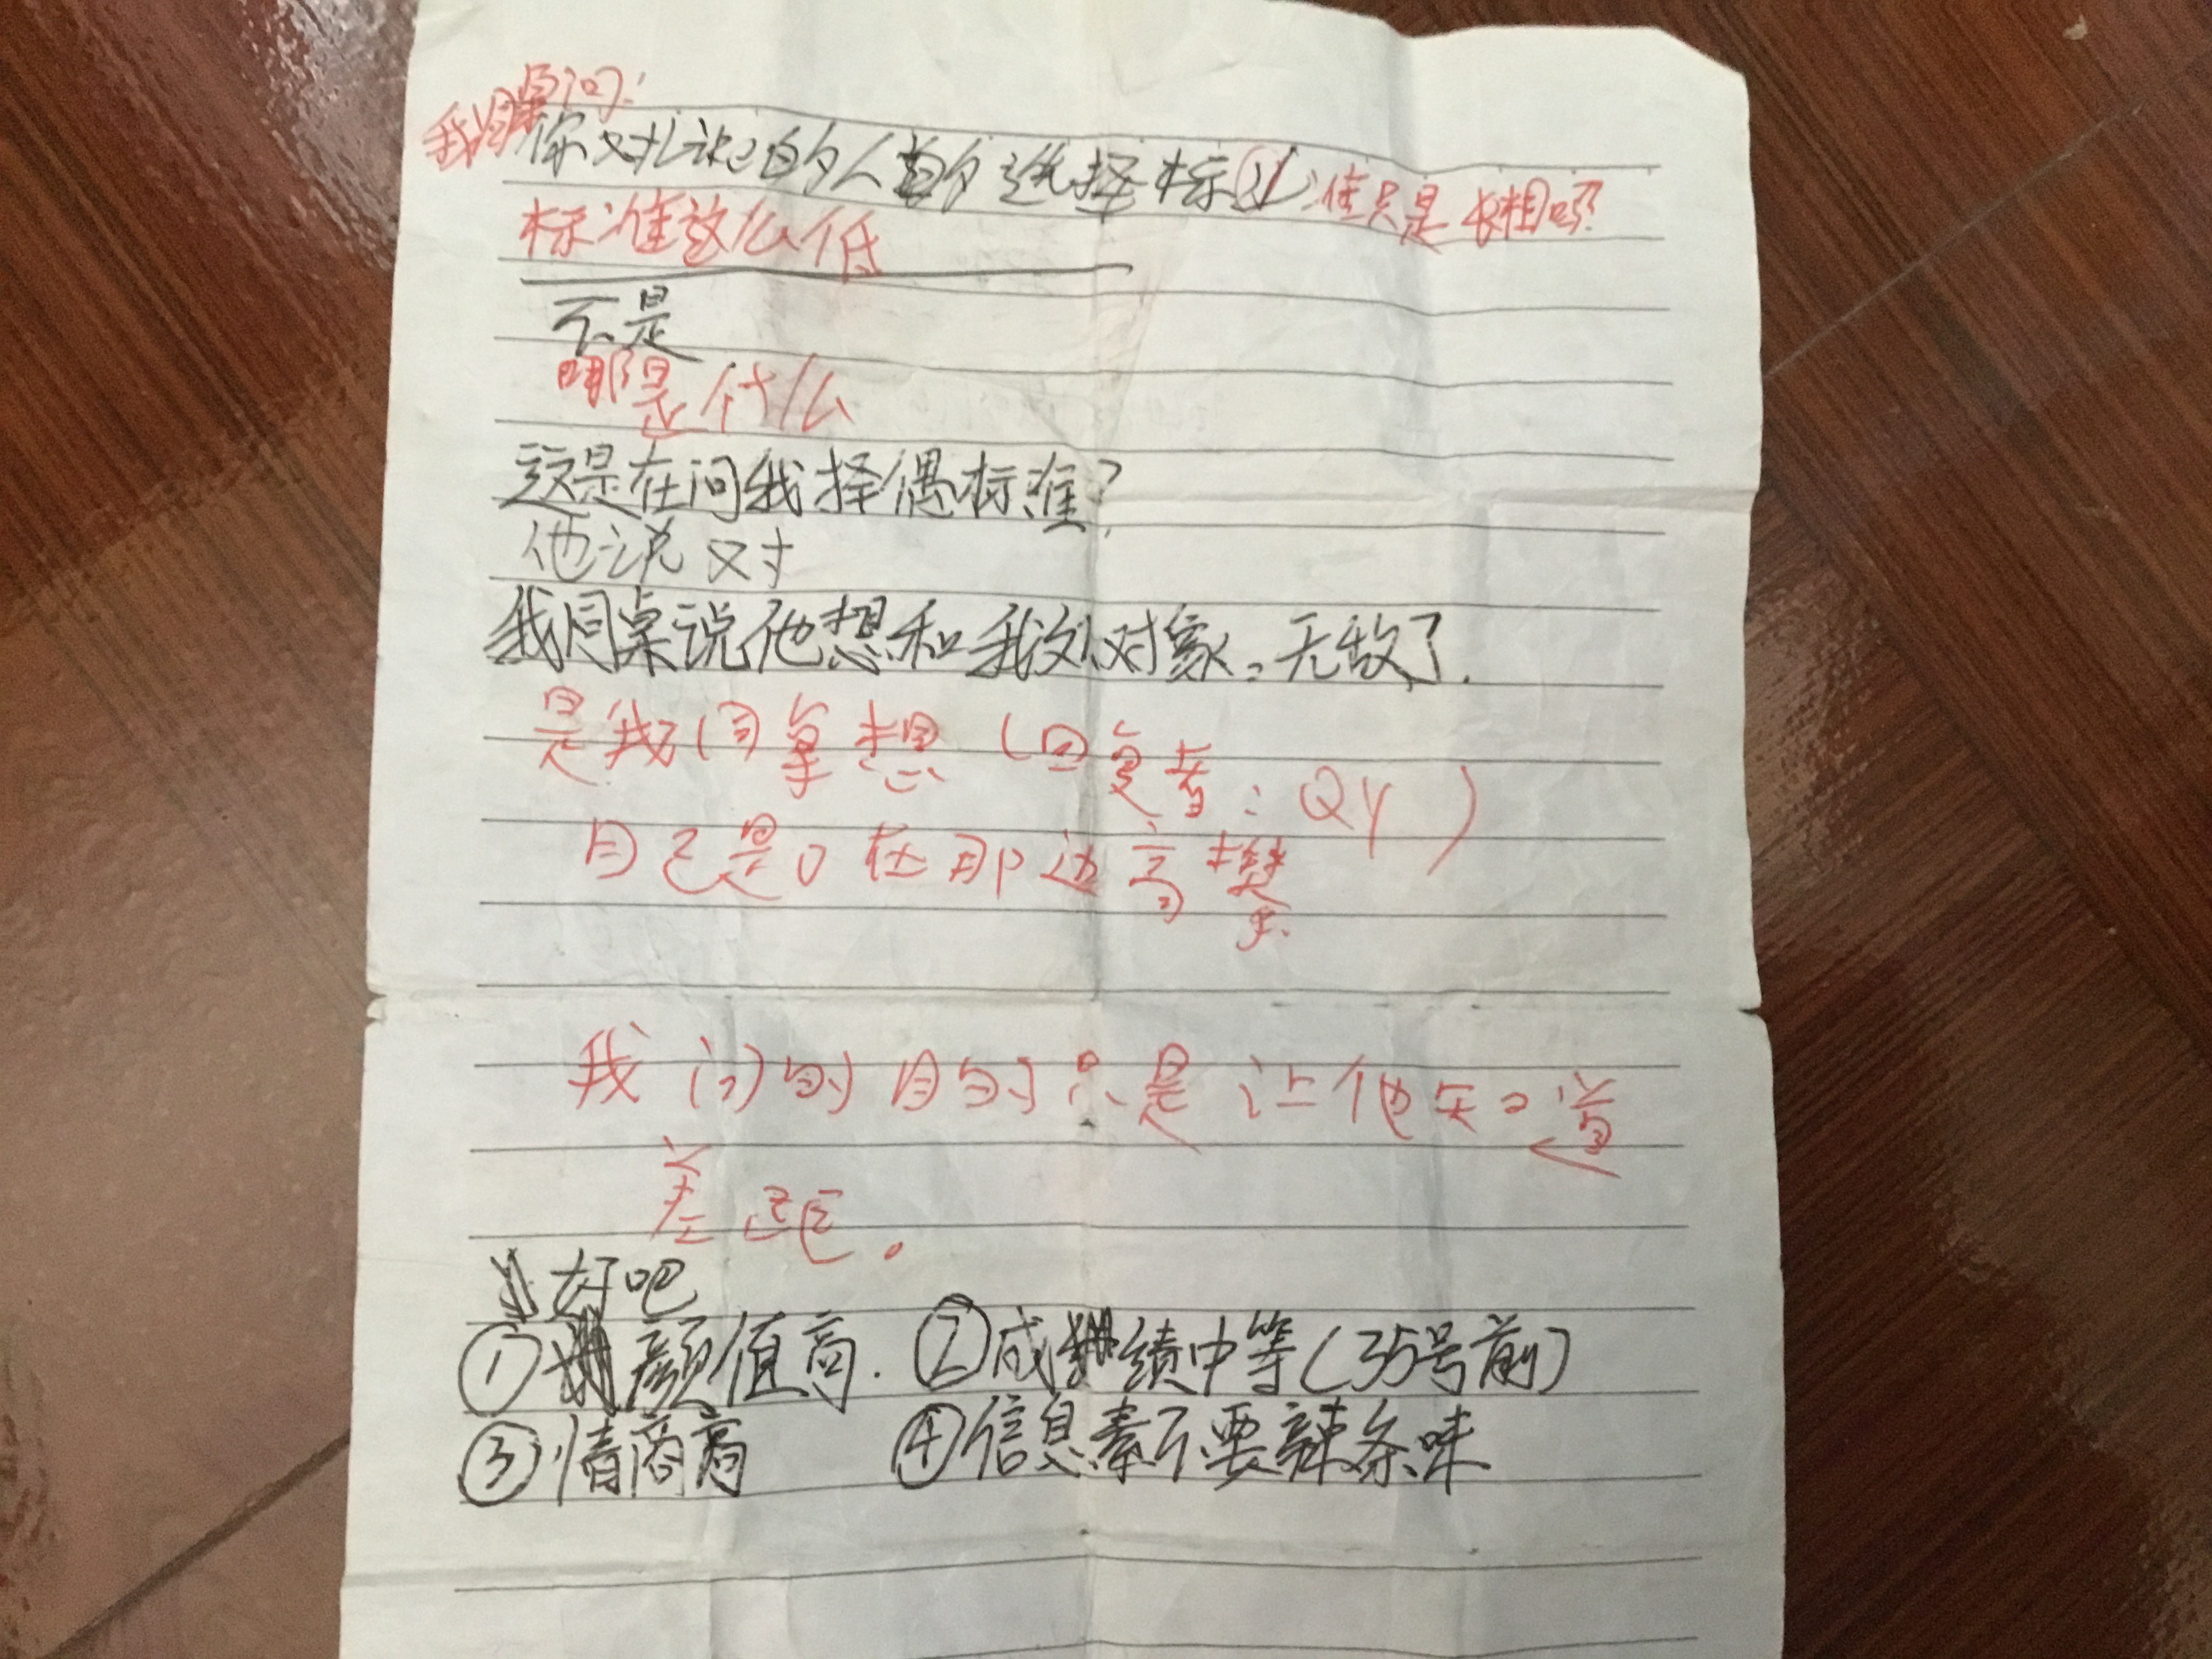 我同桌问:
你对之的人的选择标准只是长相吗?
标准这么低
不是
哪是什么
这是在问我择偶标准?
他说对
我同桌说他想和我处对象。无敌了.
是我同桌想(回复者:QY)
自己是0在那边高攀
我问的目的只是让他知道
差距。
好吧
①颜值高. ②成绩中等(35号前)
③情商高 ④信息素不要辣条味